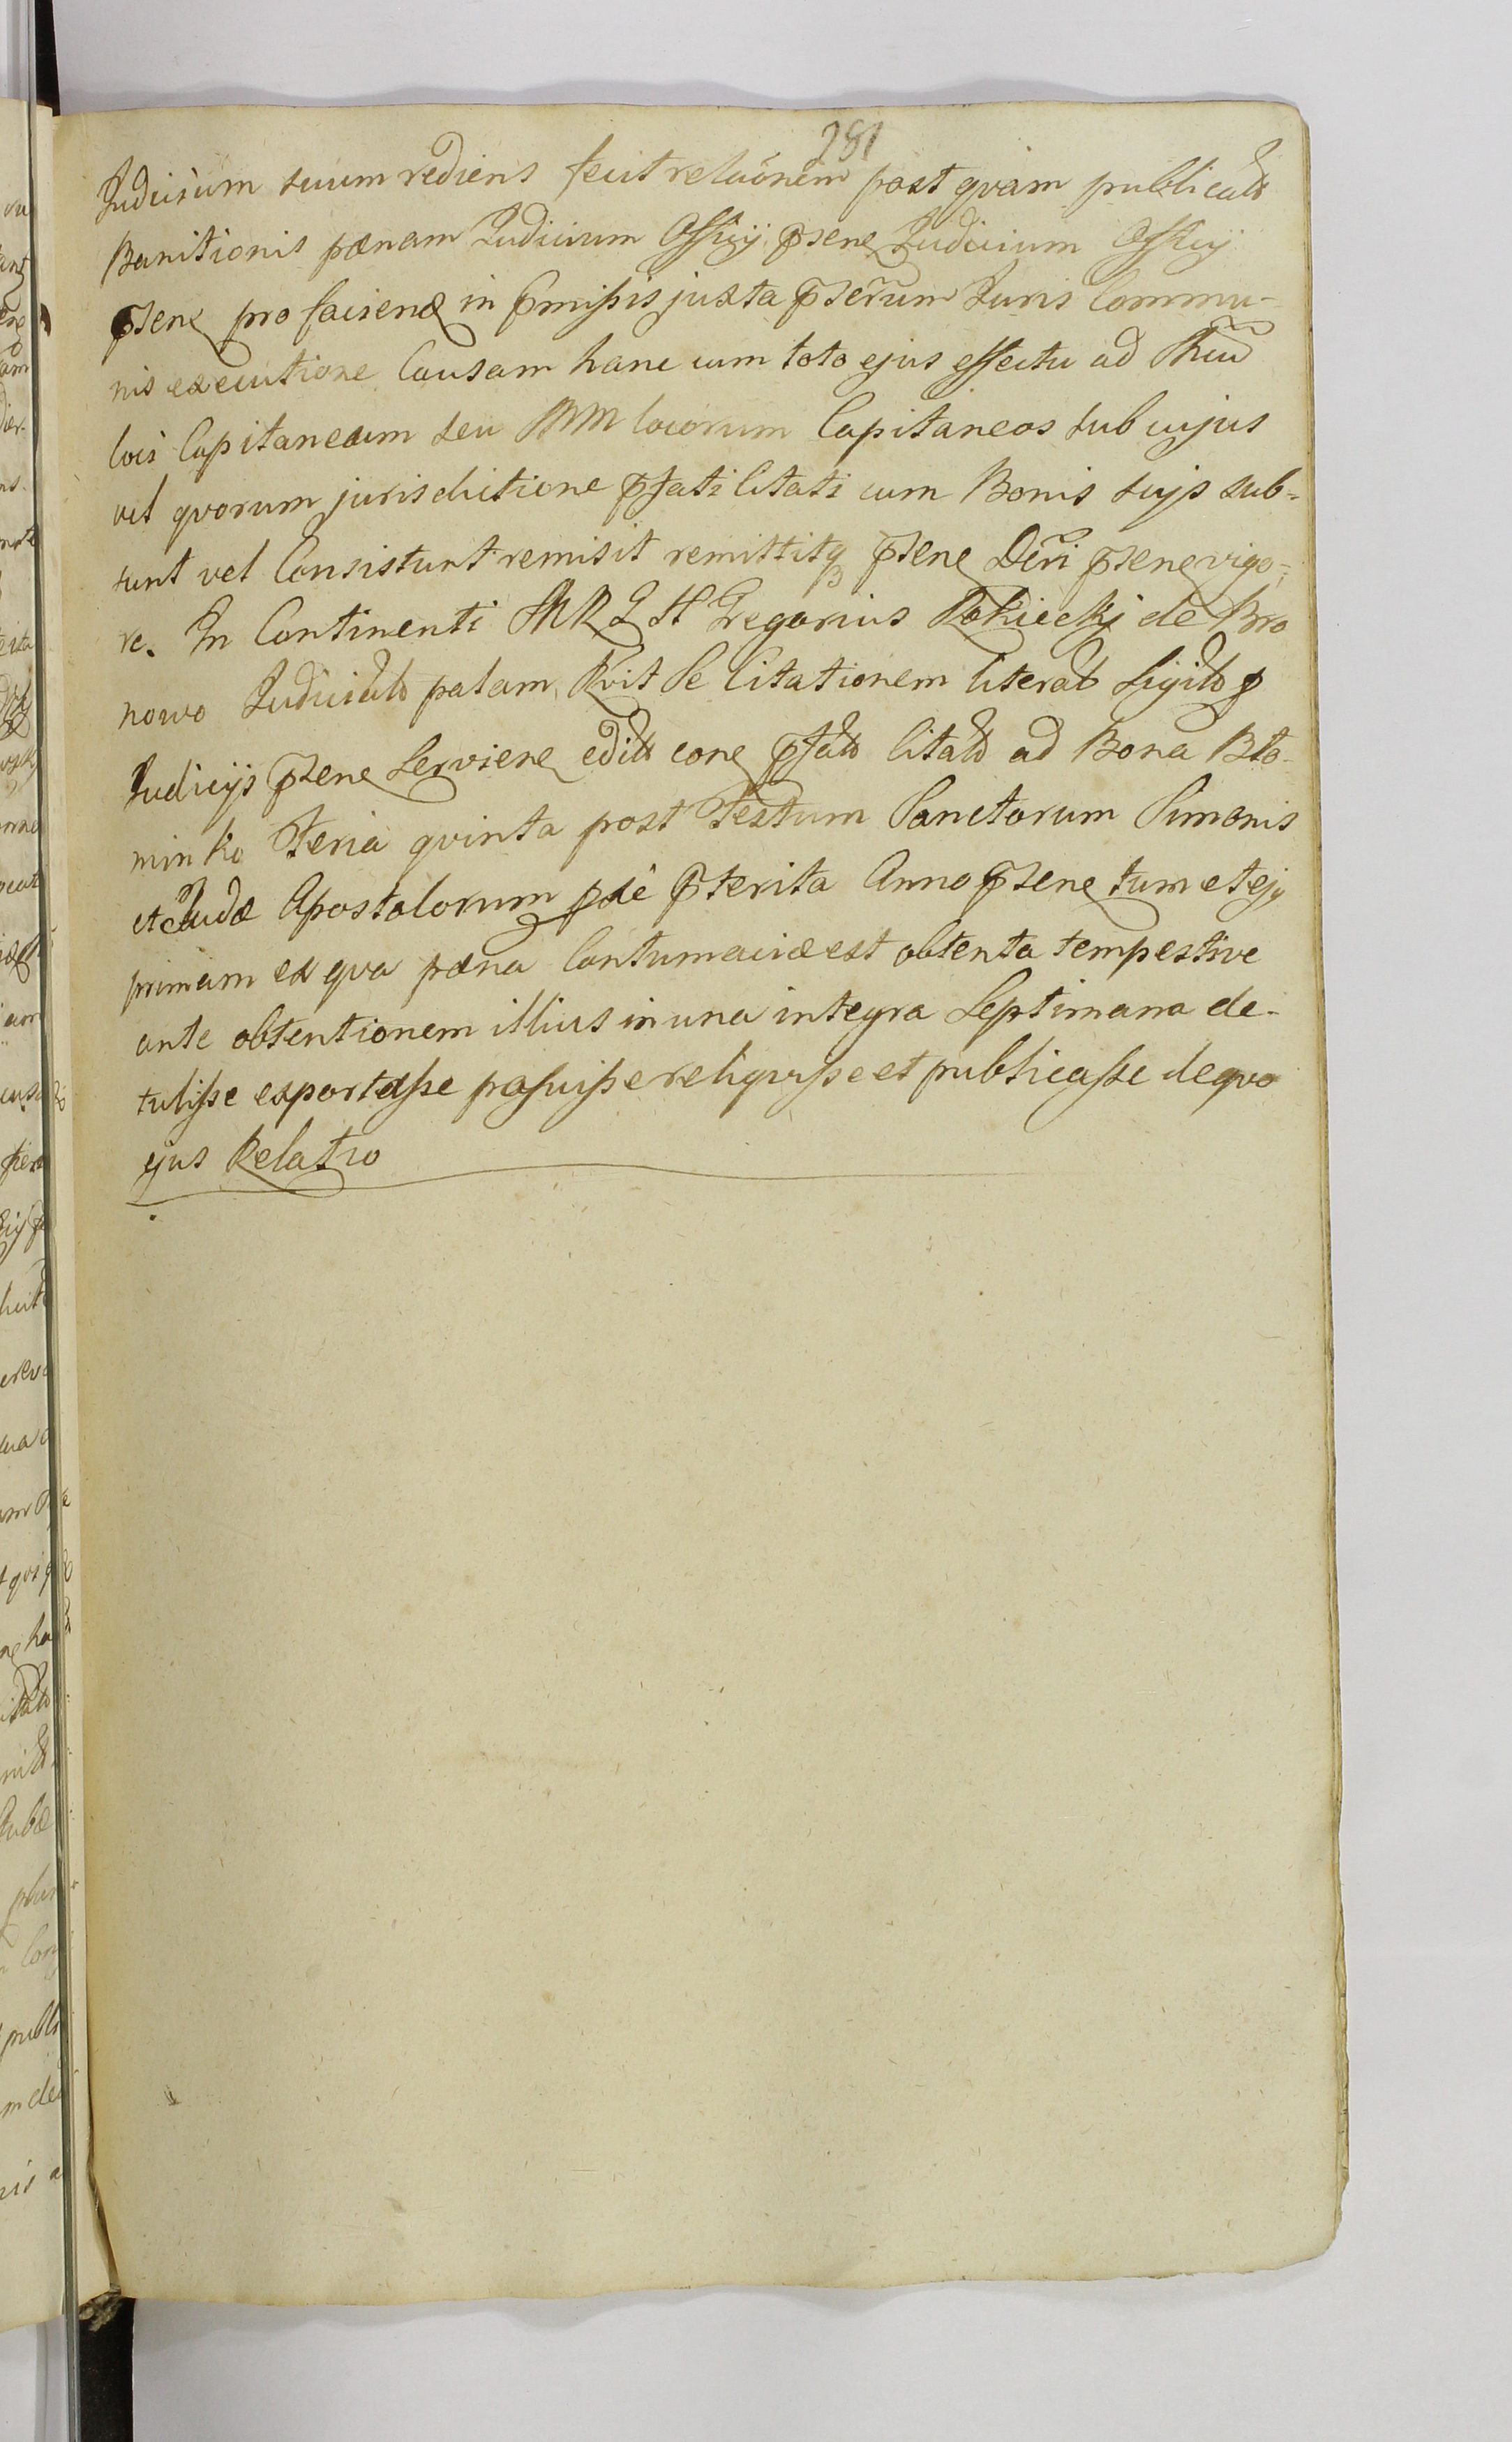 281
Judicium suum rediens fecit relaõnem post qvam publicatã
Banitionis pænam Judicium Officij pſene Judicium Officij
pſene pro facienđ in p̃miſsis juxta pſeñum Juris Commu-
nis executione Causam hanc cum toto ejus effectu ad
loci Capitaneum seu MM locorum Capitaneos sub cujus
vel qvorum jurisdictione pſati Citati cum Bonis suijs sub=
sunt vel Consistunt remisit remittitq pſene Decri pſene vigo=
re. In Continenti MRLH Gregorius Rokiecki de Bro
nowo palam Rvit Se Citationem literał Sigił p
Judicijs pſene Serviene con pſał Citał ad Bona Bło-
minko Feria qvinta post Festum Sanctorum Simonis
et Judæ Apostolorum pxie p̃terita Anno pſene tum et ejq
primam ex qva pæna Contumaciæ est obtenta tempestive
ante obtentionem illius in una integra Septimana de-
tuliſse exportaſse posuiſse reliqviſse et publicaſse de qvo
ejus Relatio